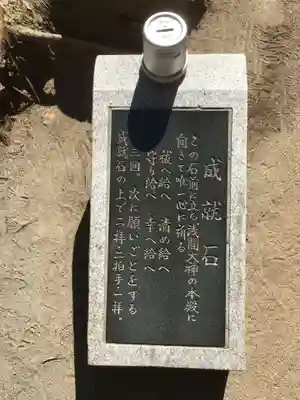 成就石
この石前に立ち浅間大神の本殿に
向きて唯一心に祈る
祓へ給へ　清め給へ
守り給へ　幸へ給へ
三回。次に願いごとをする
成就石の上で二拝二拍手一拝。